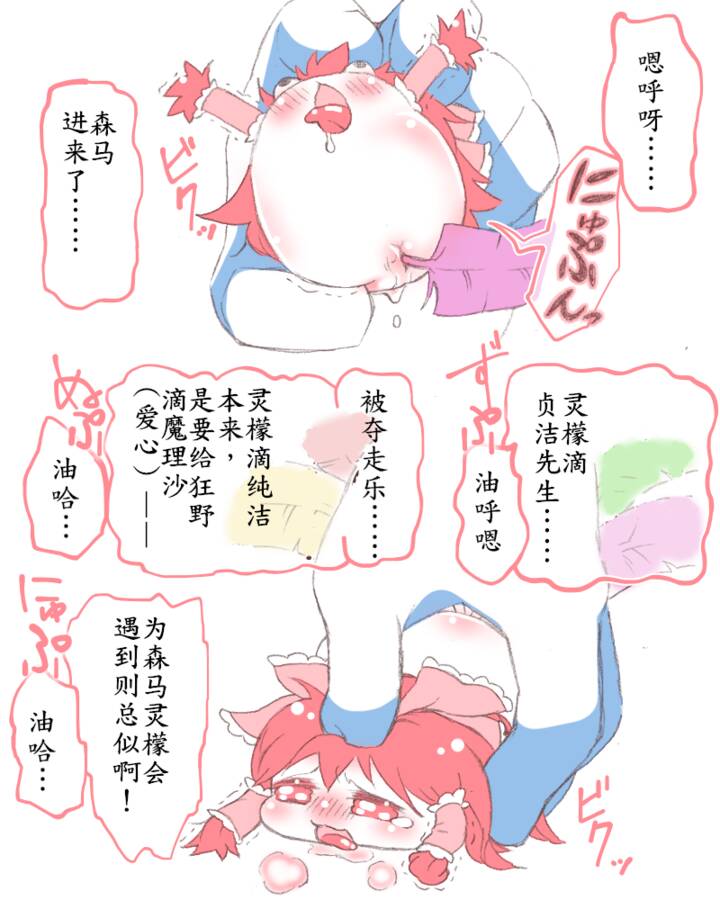 嗯呼呀……
にゅぷんっ
森马
进来了……
ビクッ
灵檬滴
贞洁先生……
ずぷっ
油呼嗯
被夺走乐……
灵檬滴纯洁
本来，
是要给狂野
滴魔理沙
（爱心）——
ぬぷぷー
油哈…
为森马灵檬会
遇到则总似啊！
にゅぷー
油哈…
ビクッ